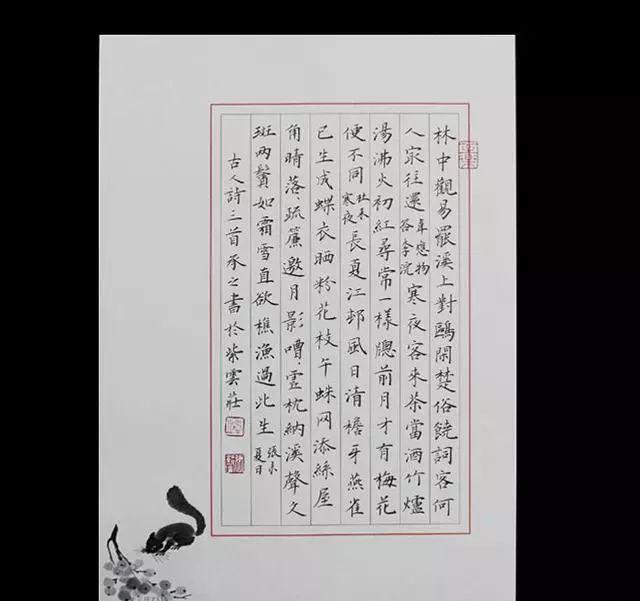 林中觀易罷溪上對鷗閑楚俗饒詞客何
人㝡往還韋應物答李浣寒夜客來茶當酒竹爐
湯沸火初紅尋常一樣牕前月才有梅花
便不同杜耒寒夜長夏江邨風日清檐牙燕雀
已生成蝶衣晒粉花枝午蛛网添絲屋
角晴落、疏簾邀月影嘈、虛枕納溪聲久
斑兩鬢如霜雪直欲樵漁過此生張耒夏日
古人詩三首承之書於紫雲莊